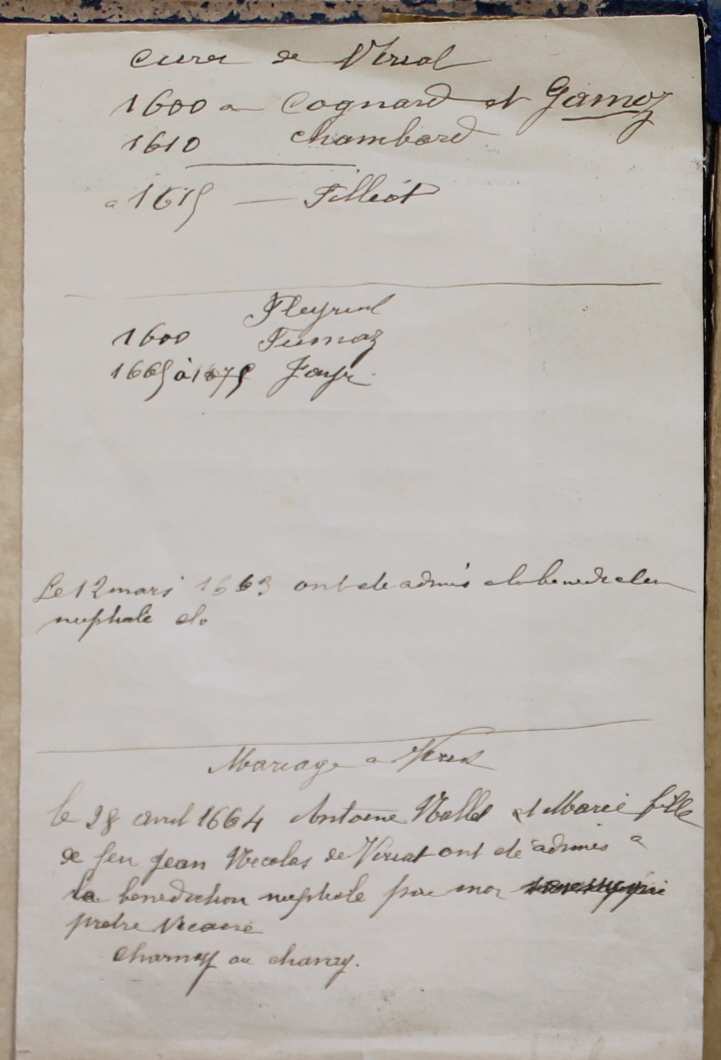 cures de Viriat
1600 a Cognard et Gamoz
1610 Chambard
a 1615 — Filliot
Fleyriat
1600 Fumaz
1665 à 1675 Faye
Le 12 mars 1663 ont ete admis a la benediction
nuptiale et
Mariage a Viriat
le 28 avril 1664 Antoine et Marie fille
de feu Jean Nicolas de Viriat ont ete admis a
la benediction nuptiale par moi
pretre vicaire
Charnay ou chanay.